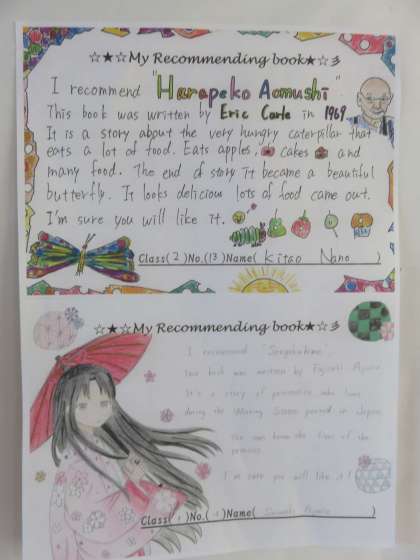 ☆★☆My Recommending book★☆彡
I recommend "Harapeko Aomushi"
This book was written by Eric Carle in 1969.
It is a story about the very hungry caterpillar that
eats a lot of food. Eats apples, cakes and
many food. The end of story it became a beautiful
butterfly. It looks delicious lots of food came out.
I'm sure you will like it.
Class(2)No.(13)Name(Kitao Nano)
☆★☆My Recommending book★☆彡
I recommend
This book was written by Fujiwara
It's a story of princess who lives
during the Warring States period in Japan.
You can know the lives of the
princess.
I'm sure you will like it!
Class( )No.( )Name( )